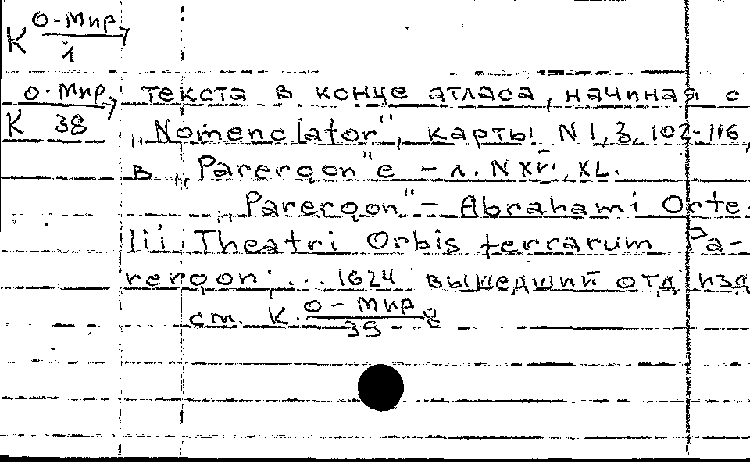 К О-Мир
1
О-Мир
К 38
текста в конце атласа, начиная с
„Nomenclator", карты N 1, 3, 102-116,
в „Parergon"е - л. N XVI, XL.
„Parergon" - Abrahami Orte-
lii Theatri Orbis terrarum Pa-
rergon ... 1624 вышедший отд изд
см. К О-Мир
39-8